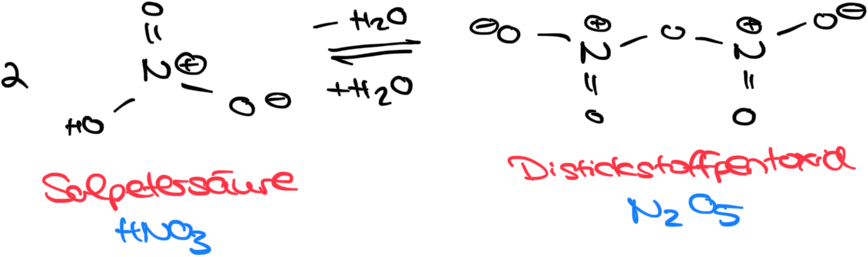 2 HO N⊕ O O⊖
− H₂O
+H₂O
⊖O N⊕ O N⊕ O⊖
O O
Salpetersäure
HNO₃
Distickstoffpentoxid
N₂O₅